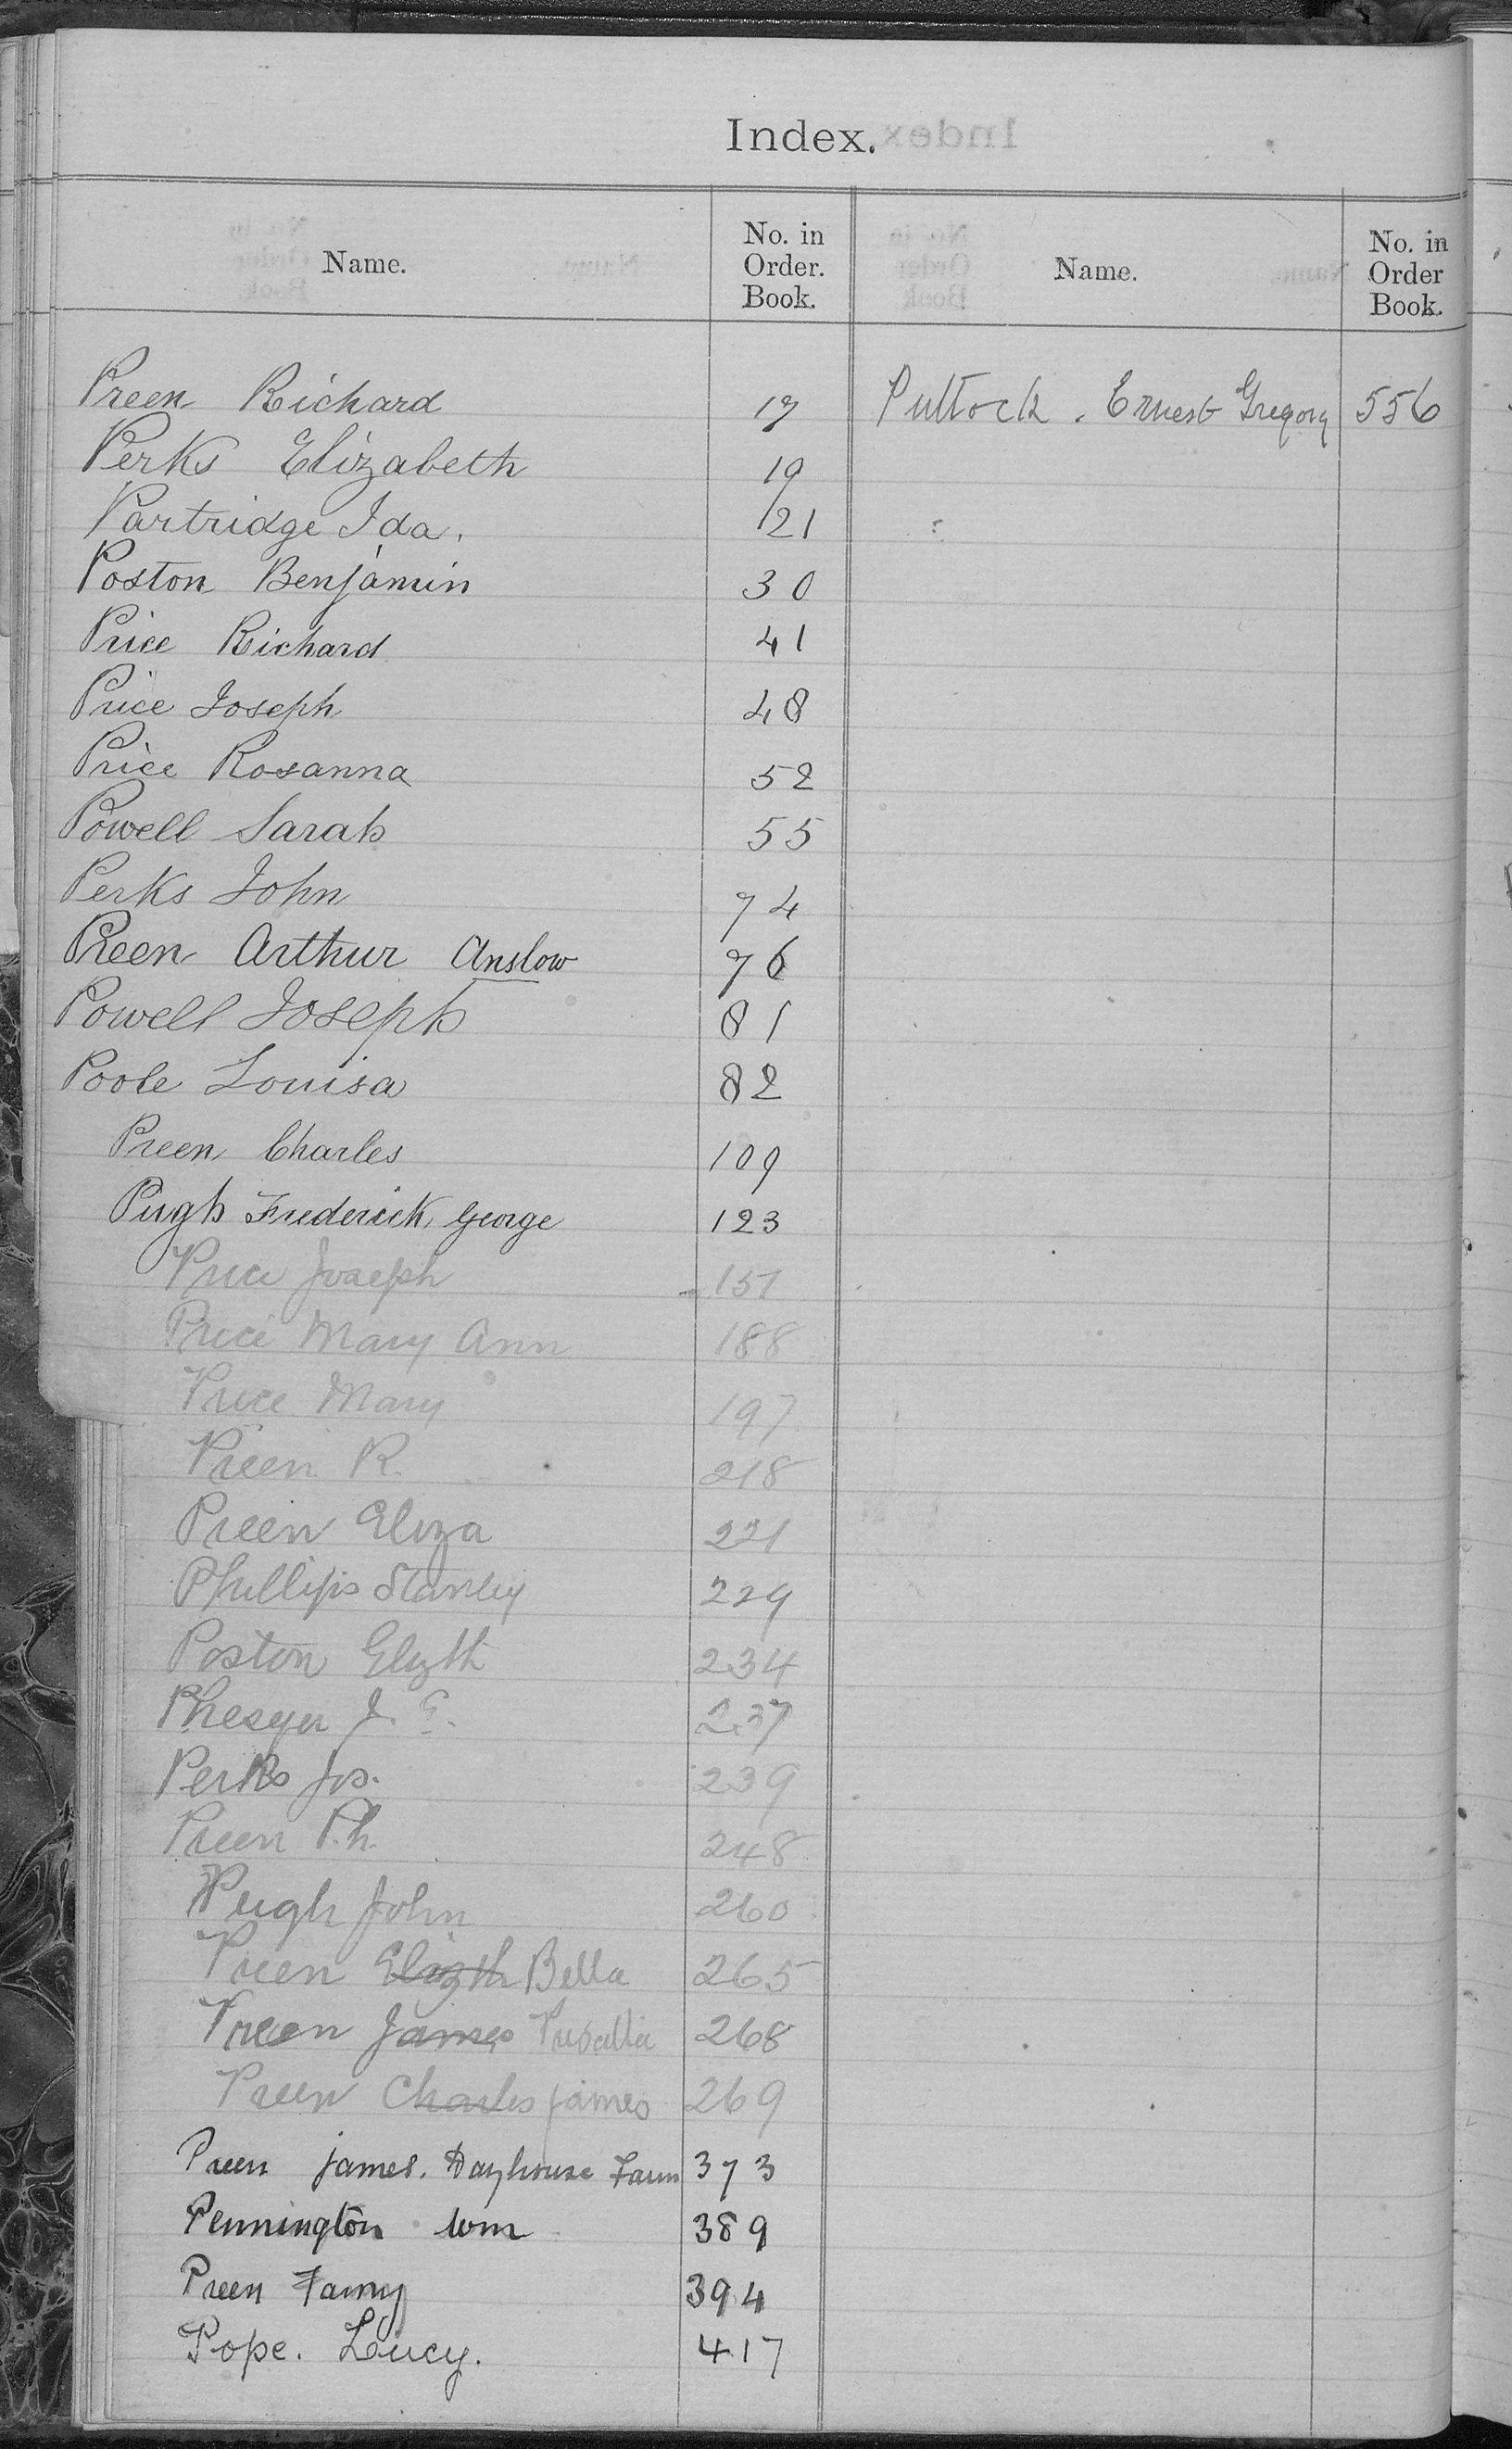 Index.
Name.
No. in
Order.
Book.
Name.
No. in
Order
Book.
Preen Richard 17
Perks Elizabeth 19
Partridge Ida. 21
Poston Benjamin 30
Price Richard 41
Price Joseph 48
Price Rosanna 52
Powell Sarah 55
Perks John 74
Preen Arthur Anslow 76
Powell Joseph 81
Poole Louisa 82
Preen Charles 109
Pugh Frederick George 123
Price Joseph 151
Price Mary Ann 188
Price Mary 197
Preen R. 218
Preen Eliza 221
Phillips Stanley 229
Poston Elizth 234
J. 237
Perks Jos. 239
Preen P.h. 248
Pugh John 260
Preen Elizth Bella 265
Preen James 268
Preen Charles James 269
Preen James. Dayhouse Farm 373
Pennington Wm 389
Preen Fanny 394
Pope. Lucy. 417
Puttock. Ernest Gregory 556